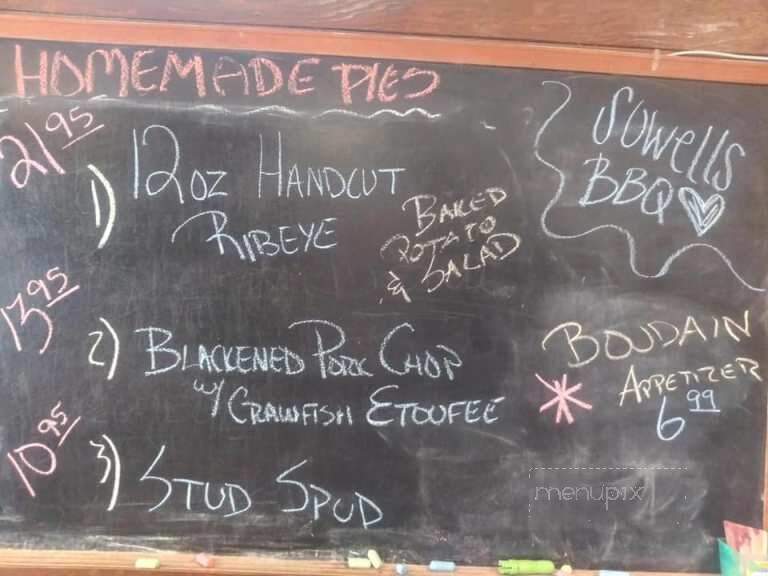 HOMEMADE PIES
21.95
1) 12 OZ HANDCUT
RIBEYE
BAKED
POTATO
& SALAD
13.95
2) BLACKENED PORK CHOP
w/ CRAWFISH ETOUFEE
10.95
3) STUD SPUD
Sowells
BBQ
BOUDAIN
* APPETIZER
6.99
menupix